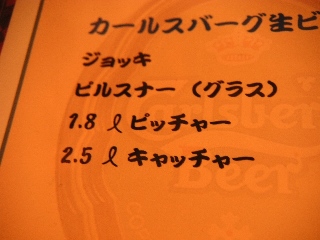 カールスバーグ生ビ
ジョッキ
ピルスナー（グラス）
1.8 ℓ ピッチャー
2.5 ℓ キャッチャー
Carlsberg
Beer